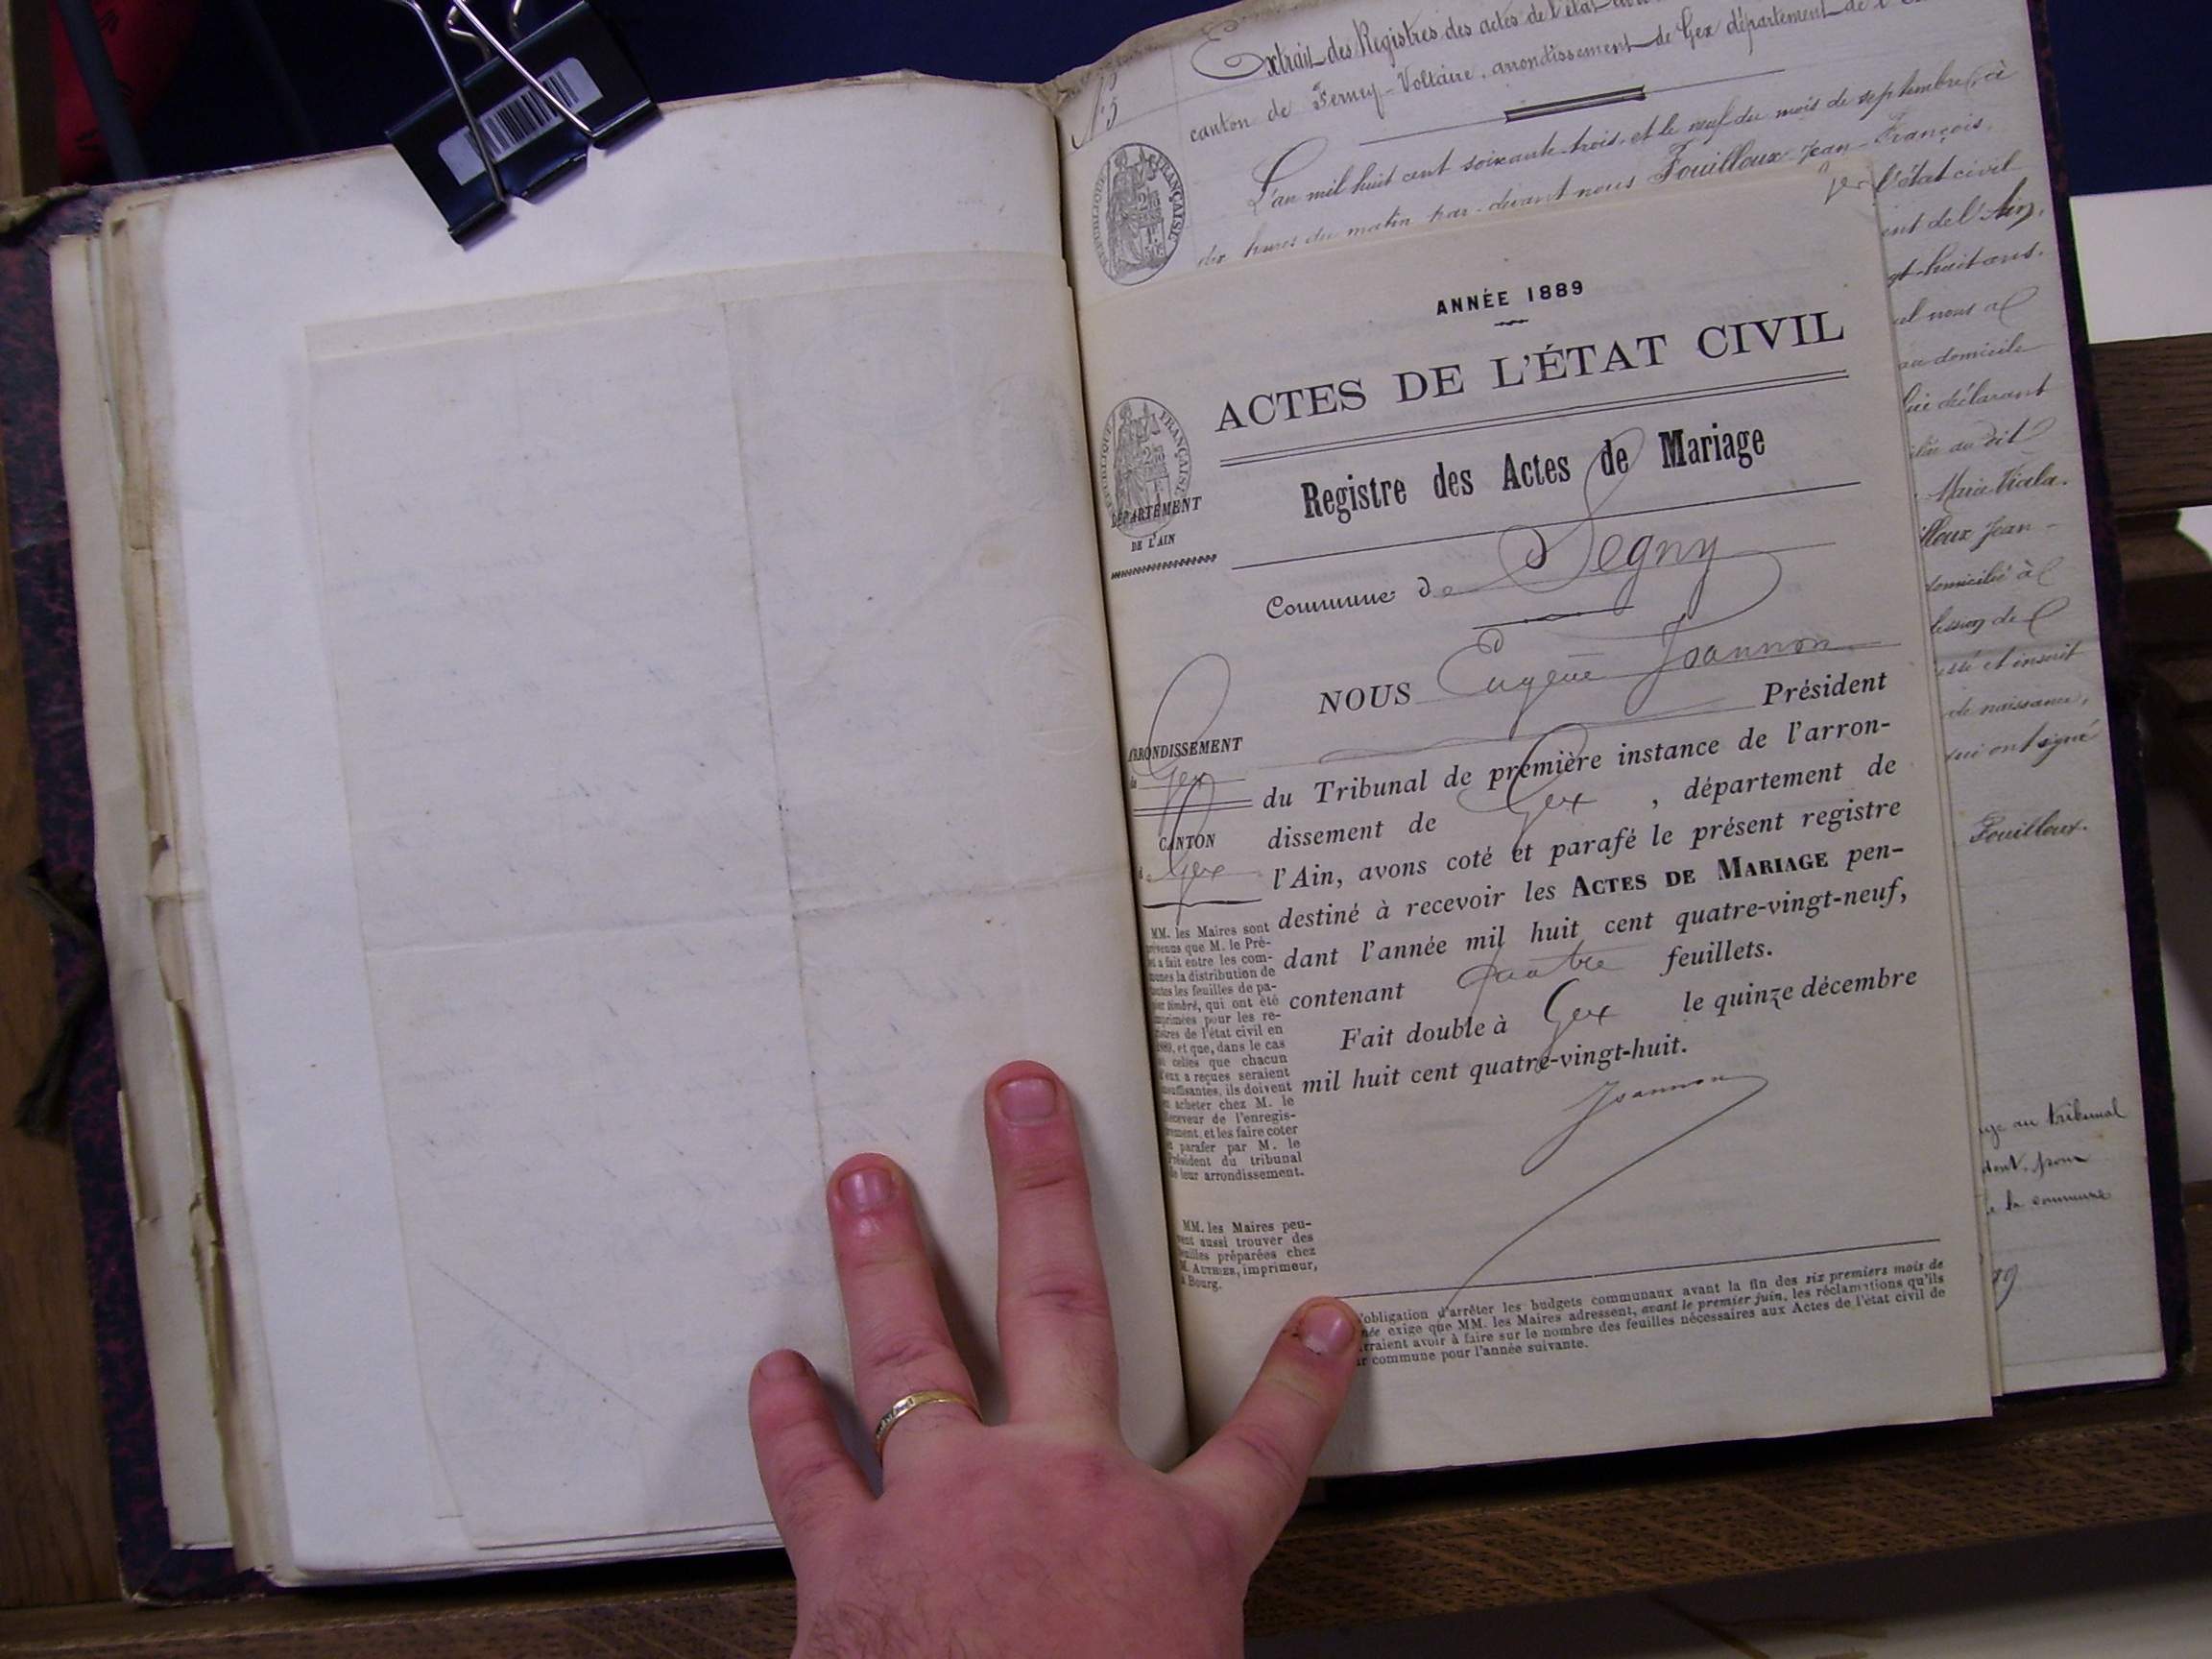 N° 5
Extrait des Registres des actes de l'état
canton de Ferney-Voltaire, arrondissement de Gex département de l'
L'an mil huit cent soixante-trois, et le neuf du mois de septembre, à
dix heures du matin par-devant nous Fouilloux Jean-François,
l'état civil
ent de l'Ain,
gt-huit ans.
el nous a
au domicile
lui déclarant
au dit
Marie Viala.
illoux Jean-
domicilié à
ession de
et inscrit
de naissance,
qui ont signé
Fouilloux.
au tribunal
pour
la commune
RÉPUBLIQUE FRANÇAISE
ANNÉE 1889
ACTES DE L'ÉTAT CIVIL
Registre des Actes de Mariage
RÉPUBLIQUE FRANÇAISE
DÉPARTEMENT
DE L'AIN
Commune de Segny
NOUS Eugène Joannon
Président
du Tribunal de première instance de l'arron-
dissement de Gex, département de
l'Ain, avons coté et parafé le présent registre
destiné à recevoir les ACTES DE MARIAGE pen-
dant l'année mil huit cent quatre-vingt-neuf,
contenant quatre feuillets.
Fait double à Gex le quinze décembre
mil huit cent quatre-vingt-huit.
Joannon
ARRONDISSEMENT
de Gex
CANTON
de Gex
MM. les Maires sont
prévenus que M. le Pré-
et a fait entre les com-
munes la distribution de
toutes les feuilles de pa-
pier timbré, qui ont été
imprimées pour les re-
gistres de l'état civil en
1889, et que, dans le cas
où celles que chacun
d'eux a reçues seraient
insuffisantes, ils doivent
en acheter chez M. le
Receveur de l'enregis-
trement, et les faire coter
et parafer par M. le
Président du tribunal
de leur arrondissement.
MM. les Maires peu-
vent aussi trouver des
feuilles préparées chez
M. AUTHIER, imprimeur,
à Bourg.
l'obligation d'arrêter les budgets communaux avant la fin des six premiers mois de
née exige que MM. les Maires adressent, avant le premier juin, les réclamations qu'ils
rraient avoir à faire sur le nombre des feuilles nécessaires aux Actes de l'état civil de
r commune pour l'année suivante.